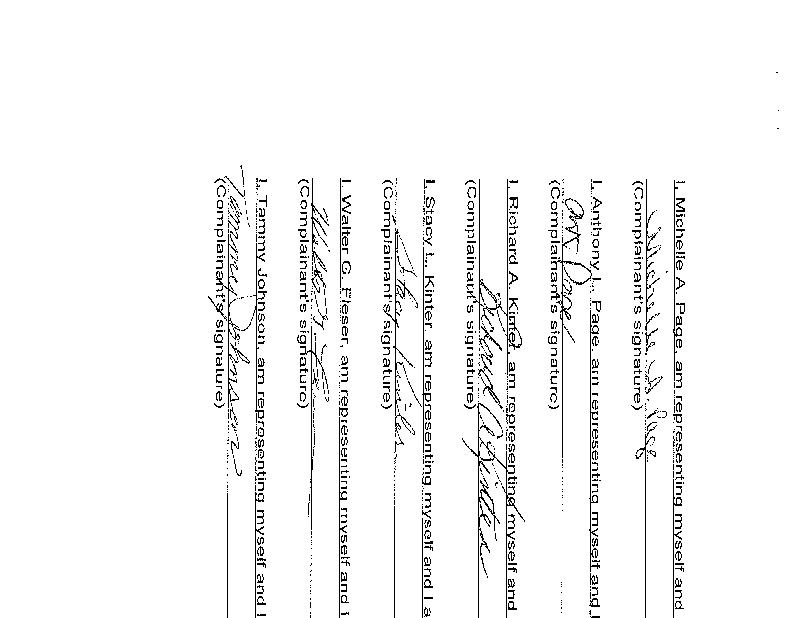 I, Michelle A. Page, am representing myself and
Michelle A Page
(Complainant's signature)
I, Anthony L. Page, am representing myself and
(Complainant's signature)
I, Richard A. Kinter, am representing myself and
Richard A Kinter
(Complainant's signature)
I, Stacy L. Kinter, am representing myself and I a
Stacy Kinter
(Complainant's signature)
I, Walter G. Fleser, am representing myself and
(Complainant's signature)
I, Tammy Johnson, am representing myself and I
Tammy Johnson
(Complainant's signature)